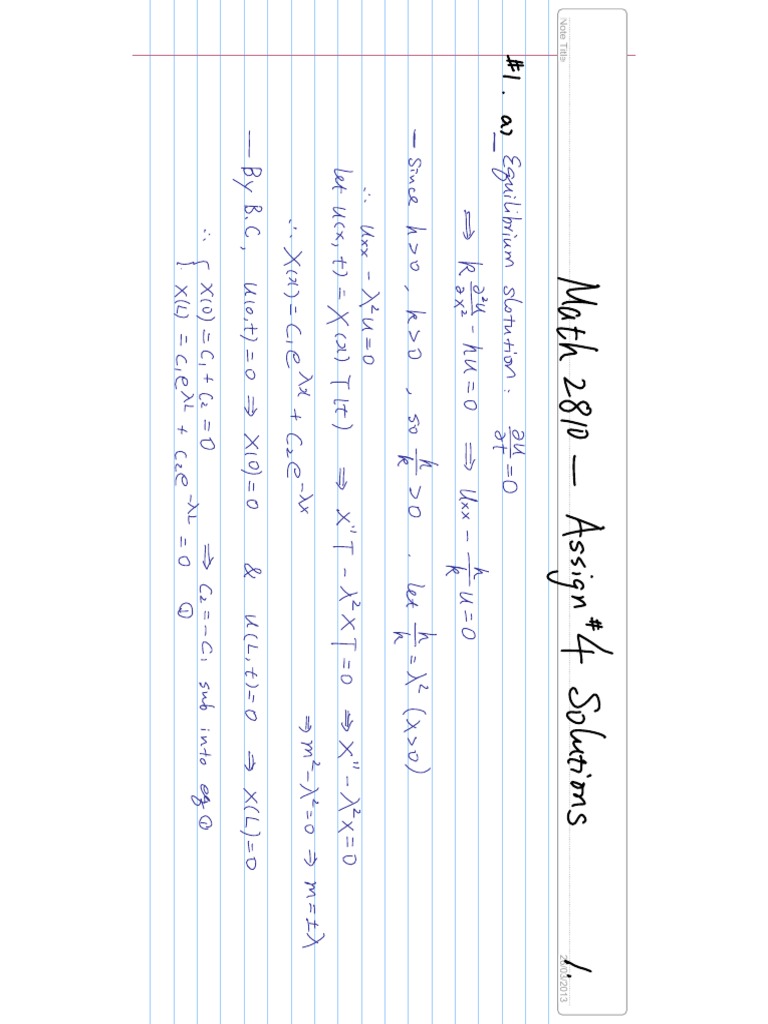 Note Title
Math 2810 — Assign #4 Solutions 1.
20/03/2013
#1. a) Equilibrium slotution: ∂u/∂t = 0
⇒ k ∂²u/∂x² - hu = 0 ⇒ Uxx - h/k u = 0
- Since h>0, k>0, so h/k >0. let h/k = λ² (λ>0)
∴ Uxx - λ²u = 0
let u(x,t) = X(x) T(t) ⇒ X''T - λ²XT = 0 ⇒ X'' - λ²X = 0
⇒ m² - λ² = 0 ⇒ m = ±λ
∴ X(x) = C₁e^{λx} + C₂e^{-λx}
- By B.C, u(0,t) = 0 ⇒ X(0) = 0 & u(L,t) = 0 ⇒ X(L) = 0
∴ { X(0) = C₁ + C₂ = 0 ⇒ C₂ = -C₁ sub into eq ①
X(L) = C₁e^{λL} + C₂e^{-λL} = 0 ①